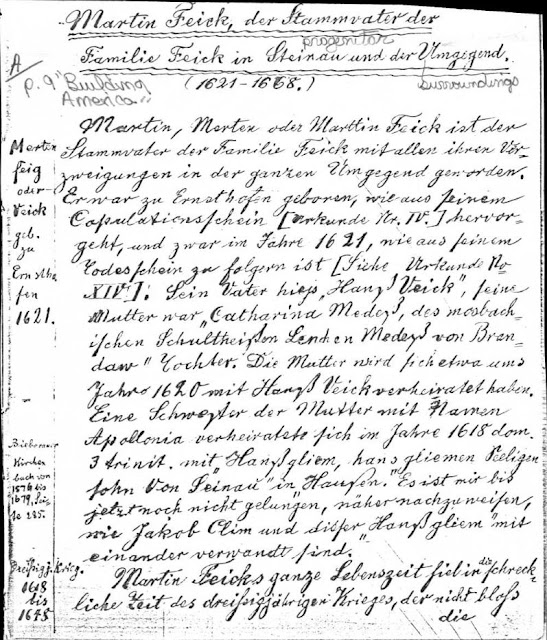 Martin Feick, der Stammvater der
progenitor
Familie Feick in Steinau und der Umgegend.
surroundings
A
p. 9 "Building
America"
(1621-1668.)
Martin, Merten oder Marttin Feick ist der
Stammvater der Familie Feick mit allen ihren Ver-
zweigungen in der ganzen Umgegend geworden.
Er war zu Ernsthofen geboren, wie aus seinem
Copulationsschein [Urkunde Nr. IV.] hervor-
geht, und zwar im Jahre 1621, wie aus seinem
Todesschein zu folgern ist [Siehe Urkunde No
XIV]. Sein Vater hieß „Hanß Veick", seine
Mutter war „Catharina Medeß, des mosbach-
ischen Schultheißen Lenhen Medeß von Bran-
daw" Tochter. Die Mutter wird sich etwa ums
Jahr 1620 mit Hanß Veick verheiratet haben.
Eine Schwester der Mutter mit Namen
Apollonia verheiratete sich im Jahre 1618 dom.
3 trinit. mit „Hanß gliem, hans gliemen Seeligen
sohn von Steinau" in Hausen. Es ist mir bis
jetzt noch nicht gelungen, näher nachzuweisen,
wie Jakob Clim und dieser „Hanß gliem" mit
einander verwandt sind.
Martin Feicks ganze Lebenszeit fiel in die schreck-
liche Zeit des dreißigjährigen Krieges, der nicht bloß
die
Merten
Feig
oder
Veick
geb.
zu
Ernstho
fen
1621.
Bieberauer
Kirchen
buch von
1579, Sei-
te 285.
Dreißigj. Krieg.
1618
bis